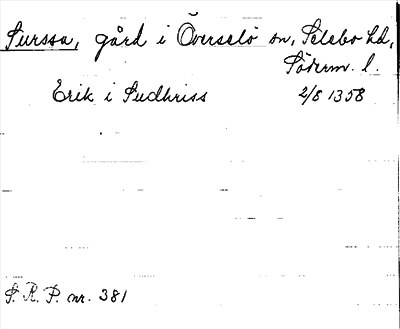 Surssa, gård i Överselö sn, Selebo hd,
Söderm. l.
Erik i Sudhriss 2/8 1358
S. R. P. nr. 381